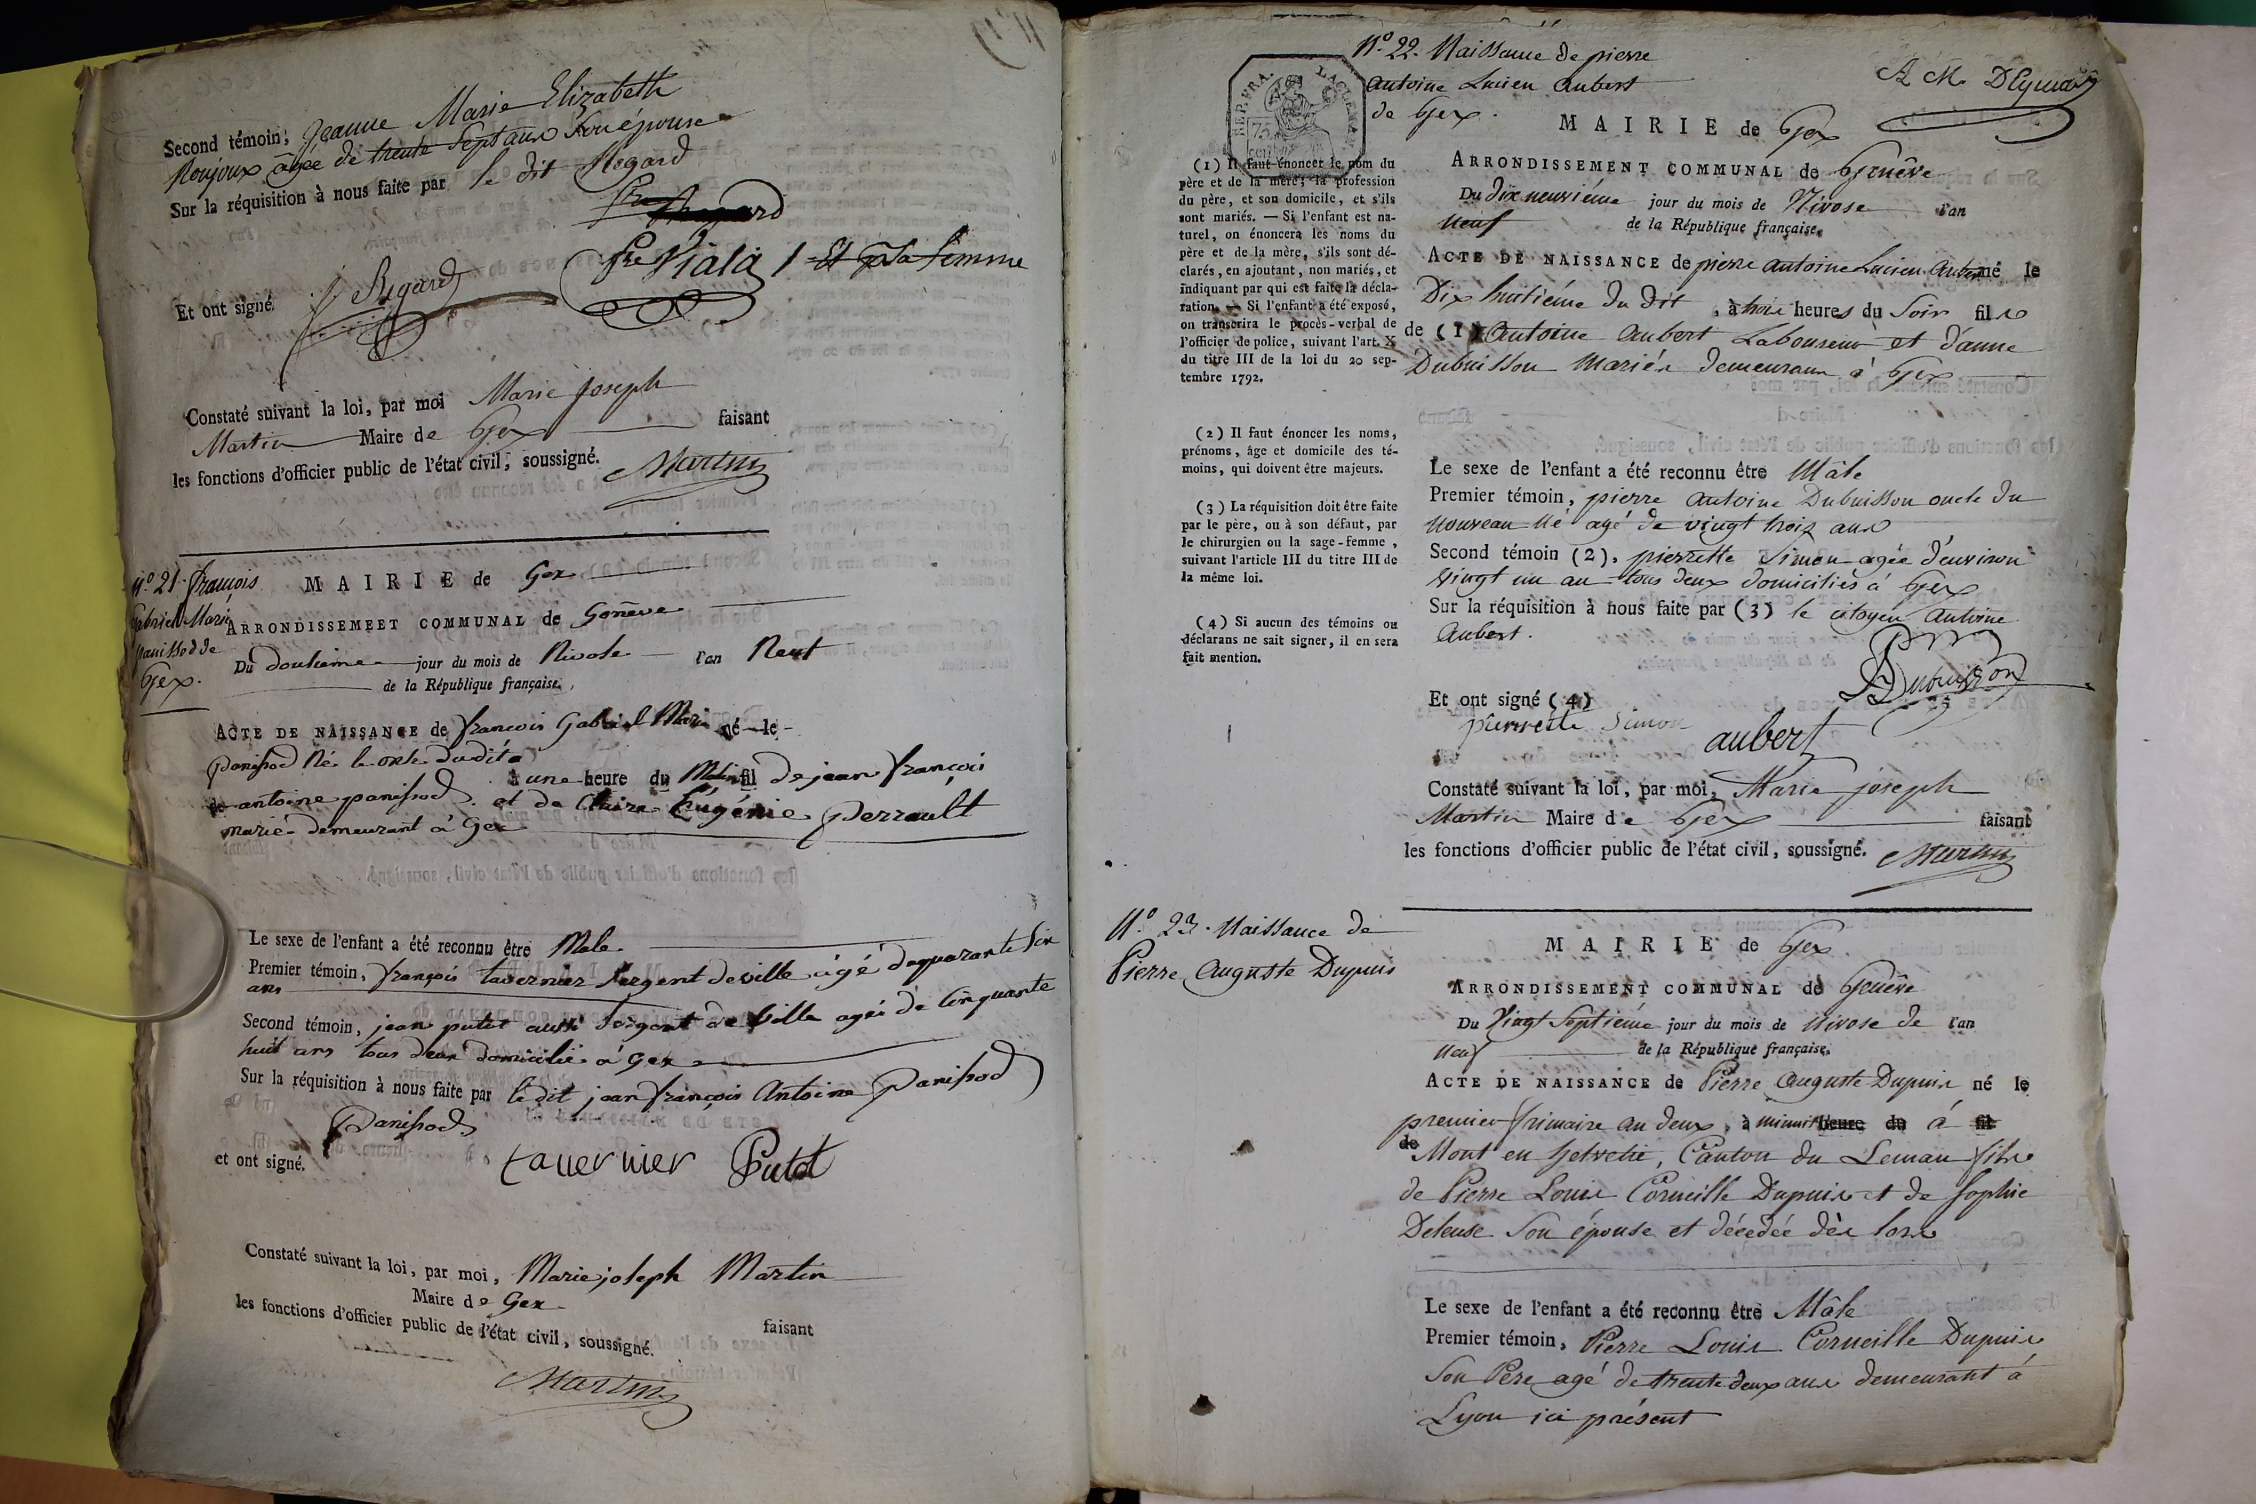 Second témoin, Jeanne Marie Elizabeth
Roujoux agée de trente Sept ans Son épouse
Sur la réquisition à nous faite par le dit Régard
fre Viala / Et sa femme
Et ont signé. Régard
Constaté suivant la loi, par moi Marie Joseph
Martin Maire de Gex faisant
les fonctions d'officier public de l'état civil, soussigné.
Martin
N.° 21. françois
Gabriel Marie
panissod de
Gex.
MAIRIE de Gex
ARRONDISSEMEET COMMUNAL de Genève
Du douzième jour du mois de Nivose l'an Neuf
de la République française.
ACTE DE NAISSANCE de francois Gabriel Marie né le
Panissod Né le onze dudit
à une heure du Matin fil de jean françois
de antoine panissod. et de Claire Eugénie Perrault
marié demeurant à Gex
Le sexe de l'enfant a été reconnu être Male.
Premier témoin, françois tavernier Sergent de ville âgé de quarante Six
ans
Second témoin, jean putot aussi Sergent de Ville agés de Cinquante
huit ans tous deux domicilié à Gex
Sur la réquisition à nous faite par le dit jean françois Antoine Panissod
Panissod
et ont signé. tavernier Putot
Constaté suivant la loi, par moi, Marie joseph Martin
Maire de Gex
faisant
les fonctions d'officier public de l'état civil, soussigné.
Martin
N.° 22. Naissance de pierre
antoine Lucien aubert
de Gex.
REP. FRA.
75
cent
MAIRIE de Gex
ARRONDISSEMENT COMMUNAL de Genêve
Du dix neuvième jour du mois de Nivose l'an
Neuf de la République française.
ACTE DE NAISSANCE de pierre antoine Lucien Aubert né le
Dix huitiéme du dit, à trois heures du Soir fils
de (1) Antoine Aubert Laboureur et d'anne
Dubuisson Mariés demeurans à Gex
(1) Il faut énoncer le nom du
père et de la mère; la profession
du père, et son domicile, et s'ils
sont mariés. — Si l'enfant est na-
turel, on énoncera les noms du
père et de la mère, s'ils sont dé-
clarés, en ajoutant, non mariés, et
indiquant par qui est faite la décla-
ration. — Si l'enfant a été exposé,
on transcrira le procès-verbal de
l'officier de police, suivant l'art. X
du titre III de la loi du 20 sep-
tembre 1792.
(2) Il faut énoncer les noms,
prénoms, âge et domicile des té-
moins, qui doivent être majeurs.
(3) La réquisition doit être faite
par le père, ou à son défaut, par
le chirurgien ou la sage-femme,
suivant l'article III du titre III de
la même loi.
(4) Si aucun des témoins ou
déclarans ne sait signer, il en sera
fait mention.
Le sexe de l'enfant a été reconnu être Mâle
Premier témoin, pierre antoine Dubuisson oncle du
nouveau né agé de vingt trois ans
Second témoin (2), pierrette Simon agée d'environ
vingt un an tous deux domiciliés à Gex
Sur la réquisition à nous faite par (3) le citoyen Antoine
Aubert.
Dubuisson
Et ont signé (4)
pierrette Simon
aubert
Constaté suivant la loi, par moi, Marie joseph
Martin Maire de Gex faisant
les fonctions d'officier public de l'état civil, soussigné. Martin
N.° 23. Naissance de
Pierre Auguste Dupuis
MAIRIE de Gex
ARRONDISSEMENT COMMUNAL de Genêve
Du Vingt Septiéme jour du mois de nivose de l'an
Neuf de la République française.
ACTE DE NAISSANCE de Pierre Auguste Dupuis né le
premier frimaire an deux, à minuit heure du à fil
de Mont en helvetie, Canton du Leman fils
de Pierre Louis Corneille Dupuis et de Sophie
Deleuse Son épouse et décedée dès lors
Le sexe de l'enfant a été reconnu être Mâle
Premier témoin, Pierre Louis Corneille Dupuis
Son Père agé de trente deux ans demeurant à
Lyon ici présent